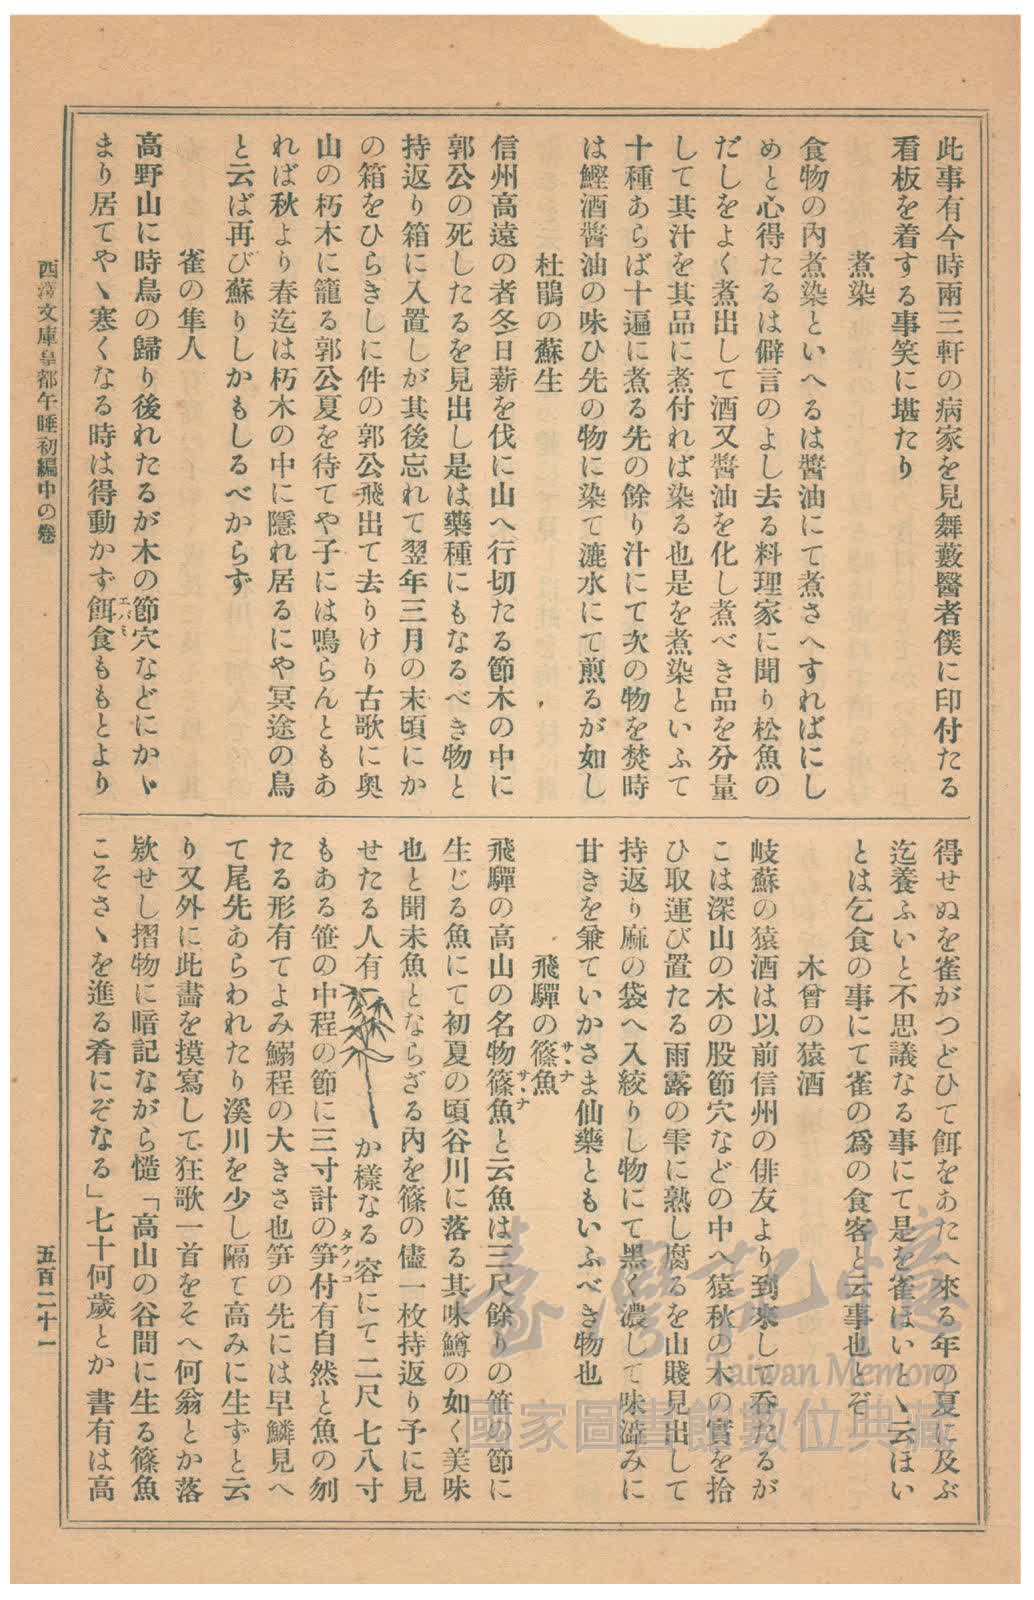 此事有今時兩三軒の病家を見舞藪醫者僕に印付たる
看板を着する事笑に堪たり
煮染
食物の內煮染といへるは醬油にて煮さへすればにし
めと心得たるは僻言のよし去る料理家に聞り松魚の
だしをよく煮出して酒又醬油を化し煮べき品を分量
して其汁を其品に煮付れば染る也是を煮染といふて
十種あらば十遍に煮る先の餘り汁にて次の物を焚時
は鰹酒醬油の味ひ先の物に染て漉水にて煎るが如し
杜鵑の蘇生
信州高遠の者冬日薪を伐に山へ行切たる節木の中に
郭公の死したるを見出し是は藥種にもなるべき物と
持返り箱に入置しが其後忘れて翌年三月の末頃にか
の箱をひらきしに件の郭公飛出て去りけり古歌に奧
山の朽木に籠る郭公夏を待てや子には鳴らんともあ
れば秋より春迄は朽木の中に隱れ居るにや冥途の鳥
と云ば再び蘇りしかもしるべからず
雀の隼人
高野山に時鳥の歸り後れたるが木の節穴などにかゝ
まり居てやゝ寒くなる時は得動かず餌食ももとより
エバミ
得せぬを雀がつどひて餌をあたへ來る年の夏に及ぶ
迄養ふいと不思議なる事にて是を雀ほいとゝ云ほい
とは乞食の事にて雀の爲の食客と云事也とぞ
木曾の猿酒
岐蘇の猿酒は以前信州の俳友より到來して呑たるが
こは深山の木の股節穴などの中へ猿秋の木の實を拾
ひ取運び置たる雨露の雫に熟し腐るを山賤見出して
持返り麻の袋へ入絞りし物にて黑く濃して味澁みに
甘きを兼ていかさま仙藥ともいふべき物也
飛驒の篠魚
サヽナ
飛驒の高山の名物篠魚と云魚は三尺餘りの笹の節に
サヽナ
生じる魚にて初夏の頃谷川に落る其味鱒の如く美味
也と聞未魚とならざる內を篠の儘一枚持返り予に見
せたる人有 か樣なる容にて二尺七八寸
もある笹の中程の節に三寸計の笋付有自然と魚の刎
タケノコ
たる形有てよみ鰯程の大きさ也笋の先には早鱗見へ
て尾先あらわれたり溪川を少し隔て高みに生ずと云
り又外に此畵を摸寫して狂歌一首をそへ何翁とか落
欵せし摺物に暗記ながら慥「高山の谷間に生る篠魚
こそさゝを進る肴にぞなる」七十何歲とか書有は高
西澤文庫皇都午睡初編中の卷
五百二十一
臺灣記憶
Taiwan Memory
國家圖書館數位典藏